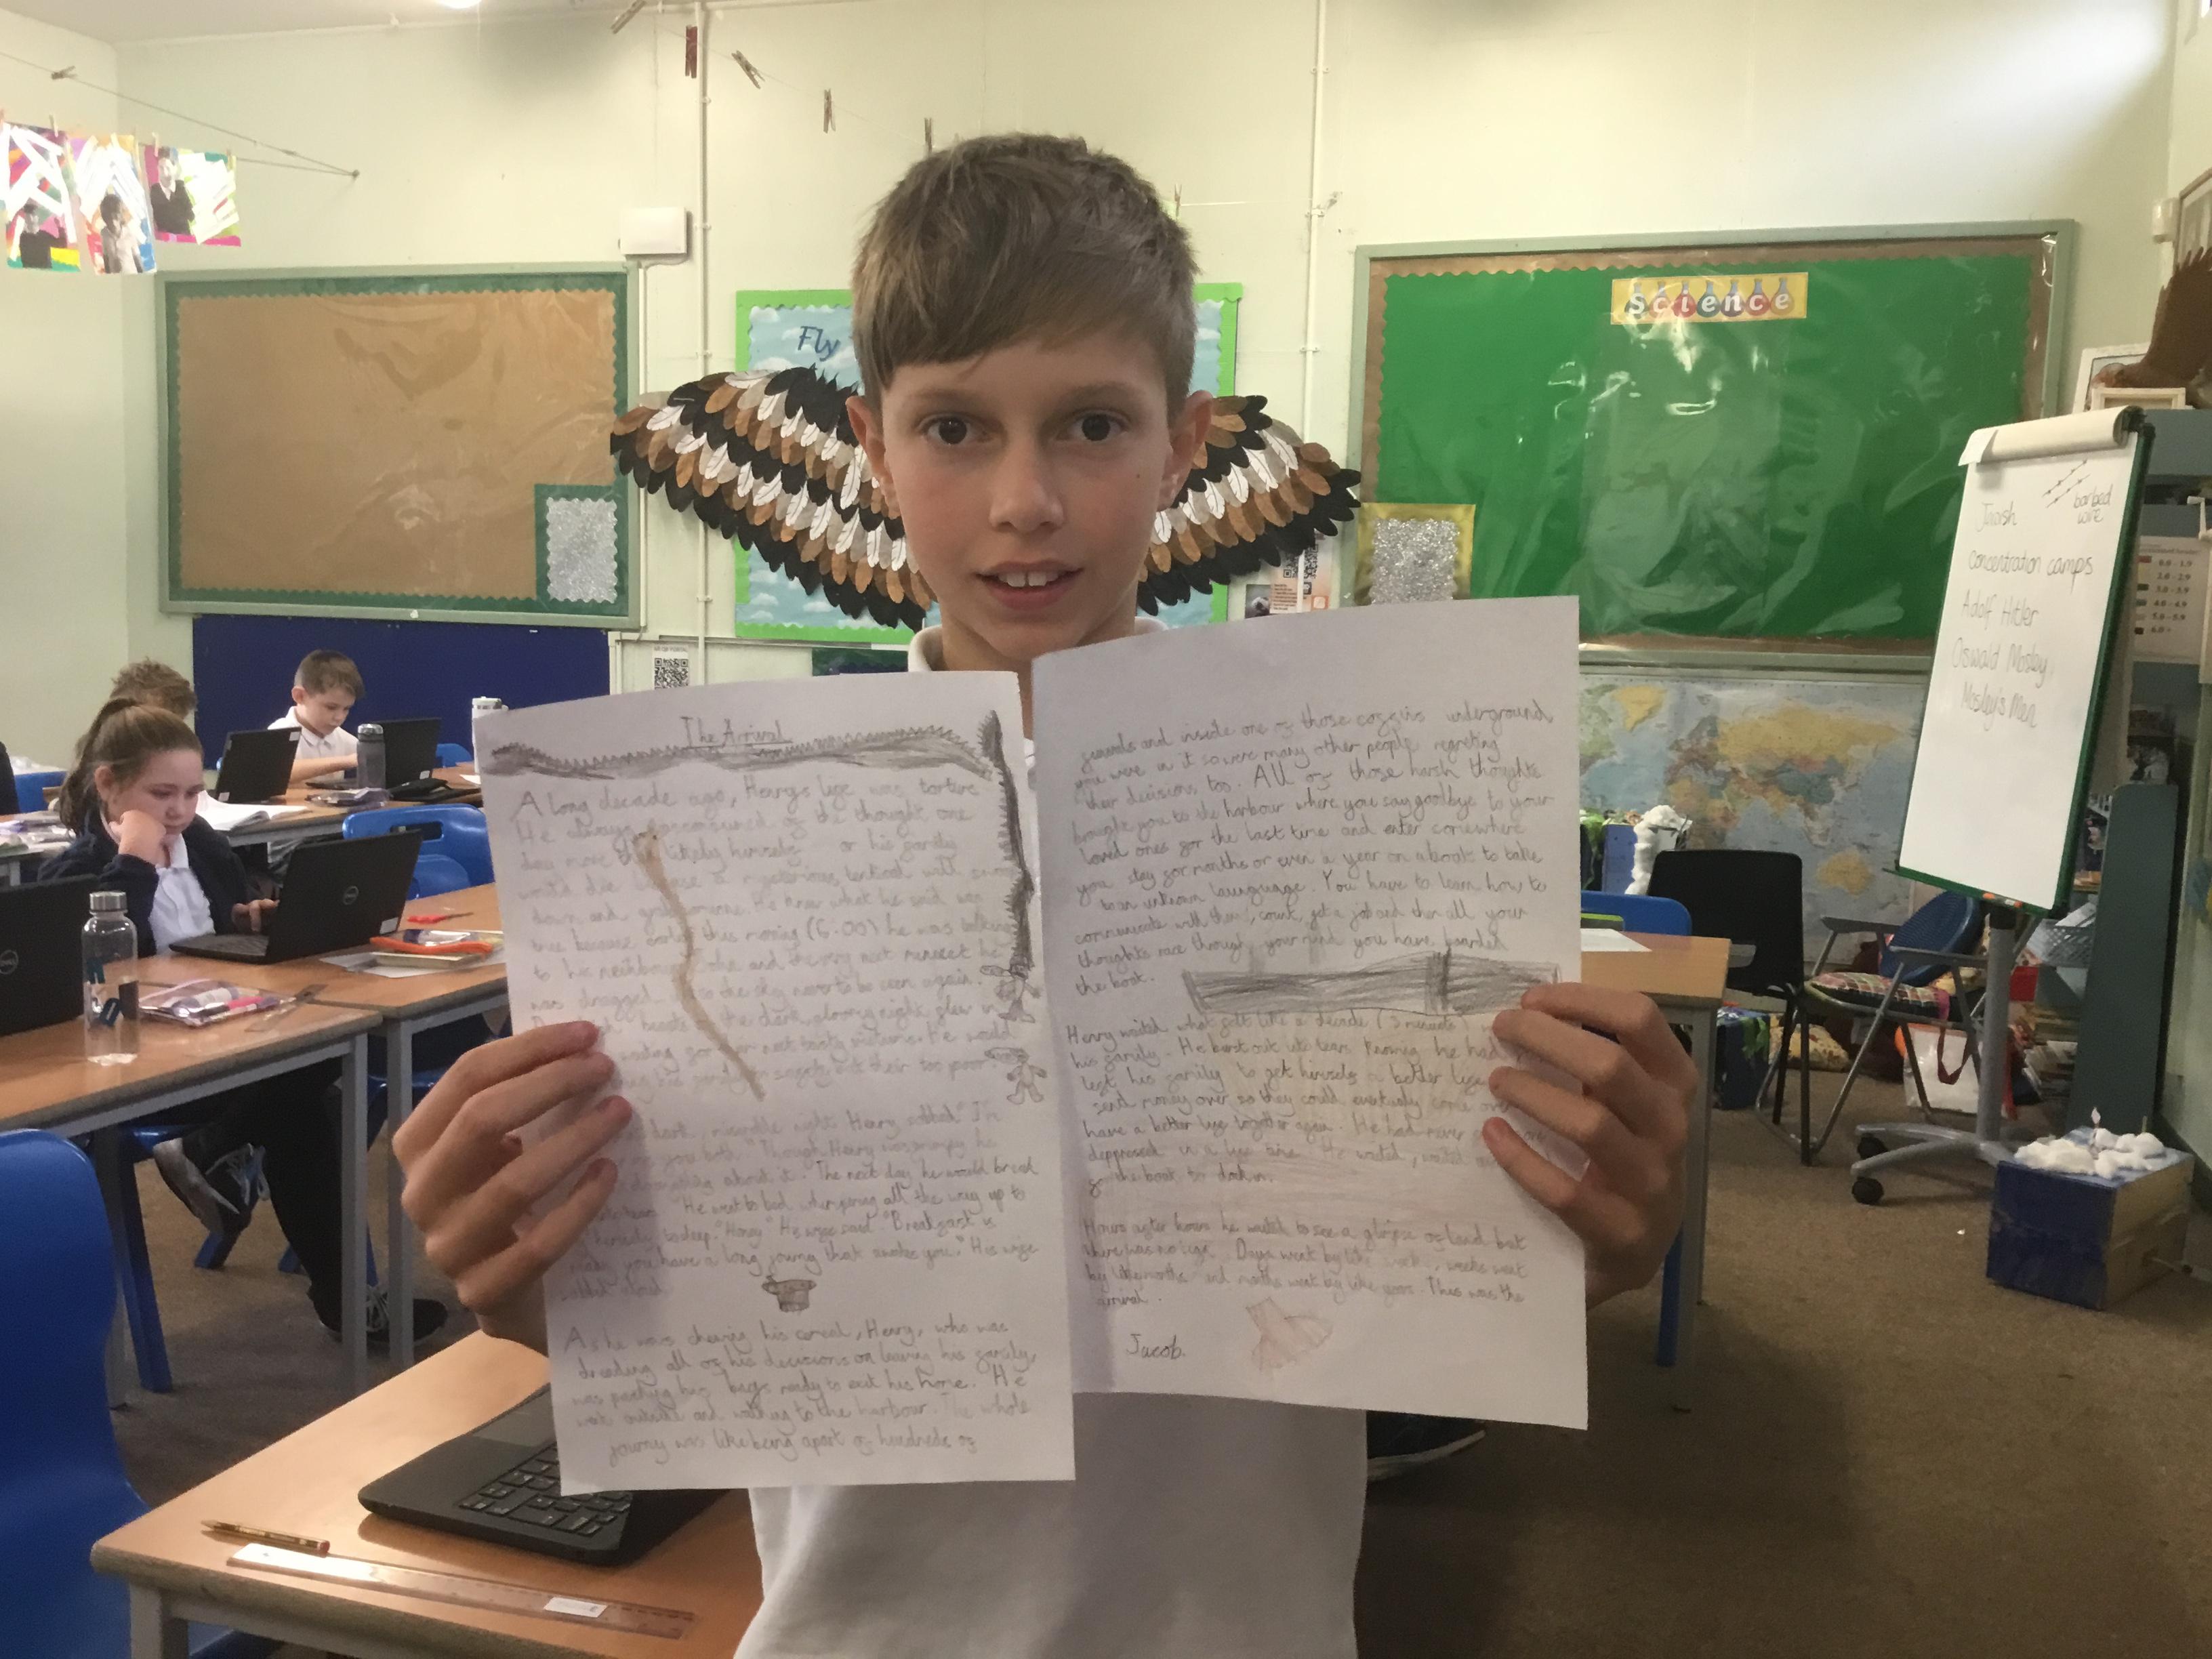 Fly
Science
Jewish
barbed
wire
concentration camps
Adolf Hitler
Oswald Mosley
Mosley's Men
The Arrival
A long decade ago, Henrys lige was torture
He always of the thought one
day more likely himself or his gamily
would die because a mysterious tentical will swoop
down and grab someone. He knew what he said was
true because earlier this morning (6:00) he was talking
to his neighbour John and the very next minuet he
was dragged the sky never to be seen again.
beasts the dark, gloomy night glew in
gor next tasty victims. He would
his gamily sagety but their too poor.
dark, miserable night Henry sobbed "I'm
you both." Though Henry was grumpy he
about it. The next day, he would break
He went to bed whimpering all the way up to
"Henry" He wige said "Breakgast is
you have a long journy that awaits you." His wige
sobbed
As he was chewing his cereal, Henry, who was
dreading all og his decisions on leaving his gamily,
was packing his bags ready to exit his home. He
went outside and walking to the harbour. The whole
journy was like being apart og hundreds og
and inside one og those coggins underground
you were in it so were many other people regreting
their decisions too. All og those harsh thoughts
brought you to the harbour where you say goodbye to your
loved ones gor the last time and enter somewhere
you stay gor months or even a year on a boat to take
to an unknown language. You have to learn how to
communicate with them, count, get a job and then all your
thoughts race through your mind you have boarded
the boat.
Henry waited what gelt like a decade (3 minutes)
his gamily. He burst out into tears knowing he had
legt his gamily to get himself a better lige
send money over so they could eventually come over
have a better lige together again. He had never
deppressed in a lige time. He waited, waited
gor the boat to dock in.
Hours agter hours he waited to see a glimpse og land but
there was no sign. Days went by like weeks, weeks went
by like months and months went by like years. This was the
arrival.
Jacob.